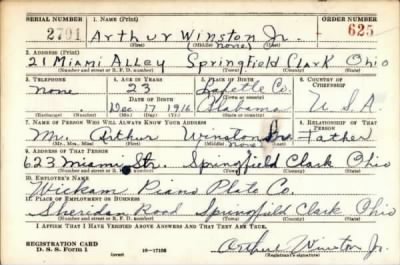 SERIAL NUMBER 1. NAME (Print) ORDER NUMBER
2791 Arthur Winston Jr. 625
(First) (Middle) none (Last)
2. ADDRESS (Print)
21 Miami Alley Springfield Clark Ohio
(Number and street or R. F. D. number) (Town) (County) (State)
3. TELEPHONE 4. AGE IN YEARS 5. PLACE OF BIRTH 6. COUNTRY OF CITIZENSHIP
none 23 Co.
DATE OF BIRTH (Town or county)
Dec 17 1916 Alabama U. S. A.
(Mo.) (Day) (Yr.) (State or country)
7. NAME OF PERSON WHO WILL ALWAYS KNOW YOUR ADDRESS 8. RELATIONSHIP OF THAT PERSON
Mr. Arthur Winston Sr. Father
(Mr., Mrs., Miss) (First) (Middle) none (Last)
9. ADDRESS OF THAT PERSON
623 Miami Str. Springfield Clark Ohio
(Number and street or R. F. D. number) (Town) (County) (State)
10. EMPLOYER'S NAME
Wickam Piano Plate Co.
11. PLACE OF EMPLOYMENT OR BUSINESS
Sheridan Road Springfield Clark Ohio
(Number and street or R. F. D. number) (Town) (County) (State)
I AFFIRM THAT I HAVE VERIFIED ABOVE ANSWERS AND THAT THEY ARE TRUE.
REGISTRATION CARD
D. S. S. Form 1 (over) 16-17105 Arthur Winston Jr.
(Registrant's signature)